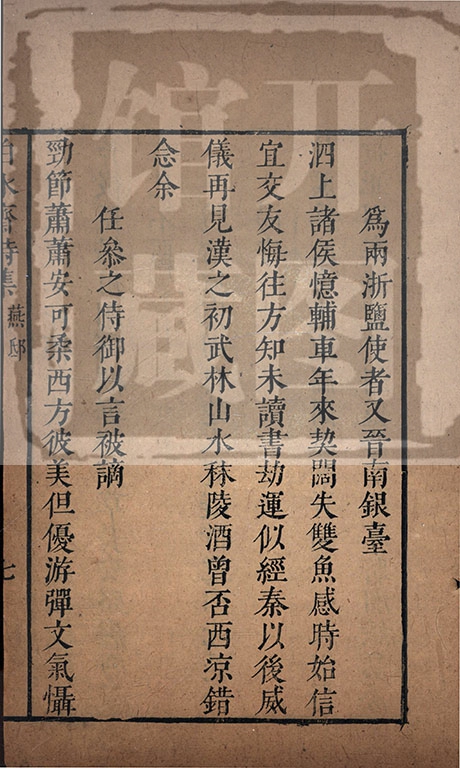 為兩浙鹽使者又晉南銀臺
泗上諸侯憶輔車年來契闊失雙魚感時始信
宜交友悔往方知未讀書劫運似經秦以後威
儀再見漢之初武林山水秣陵酒曾否西凉錯
念余
任叅之侍御以言被謫
勁節蕭蕭安可柔西方彼美但優游彈文氣懾
白水齋詩集 燕邸 七
开奎馆藏